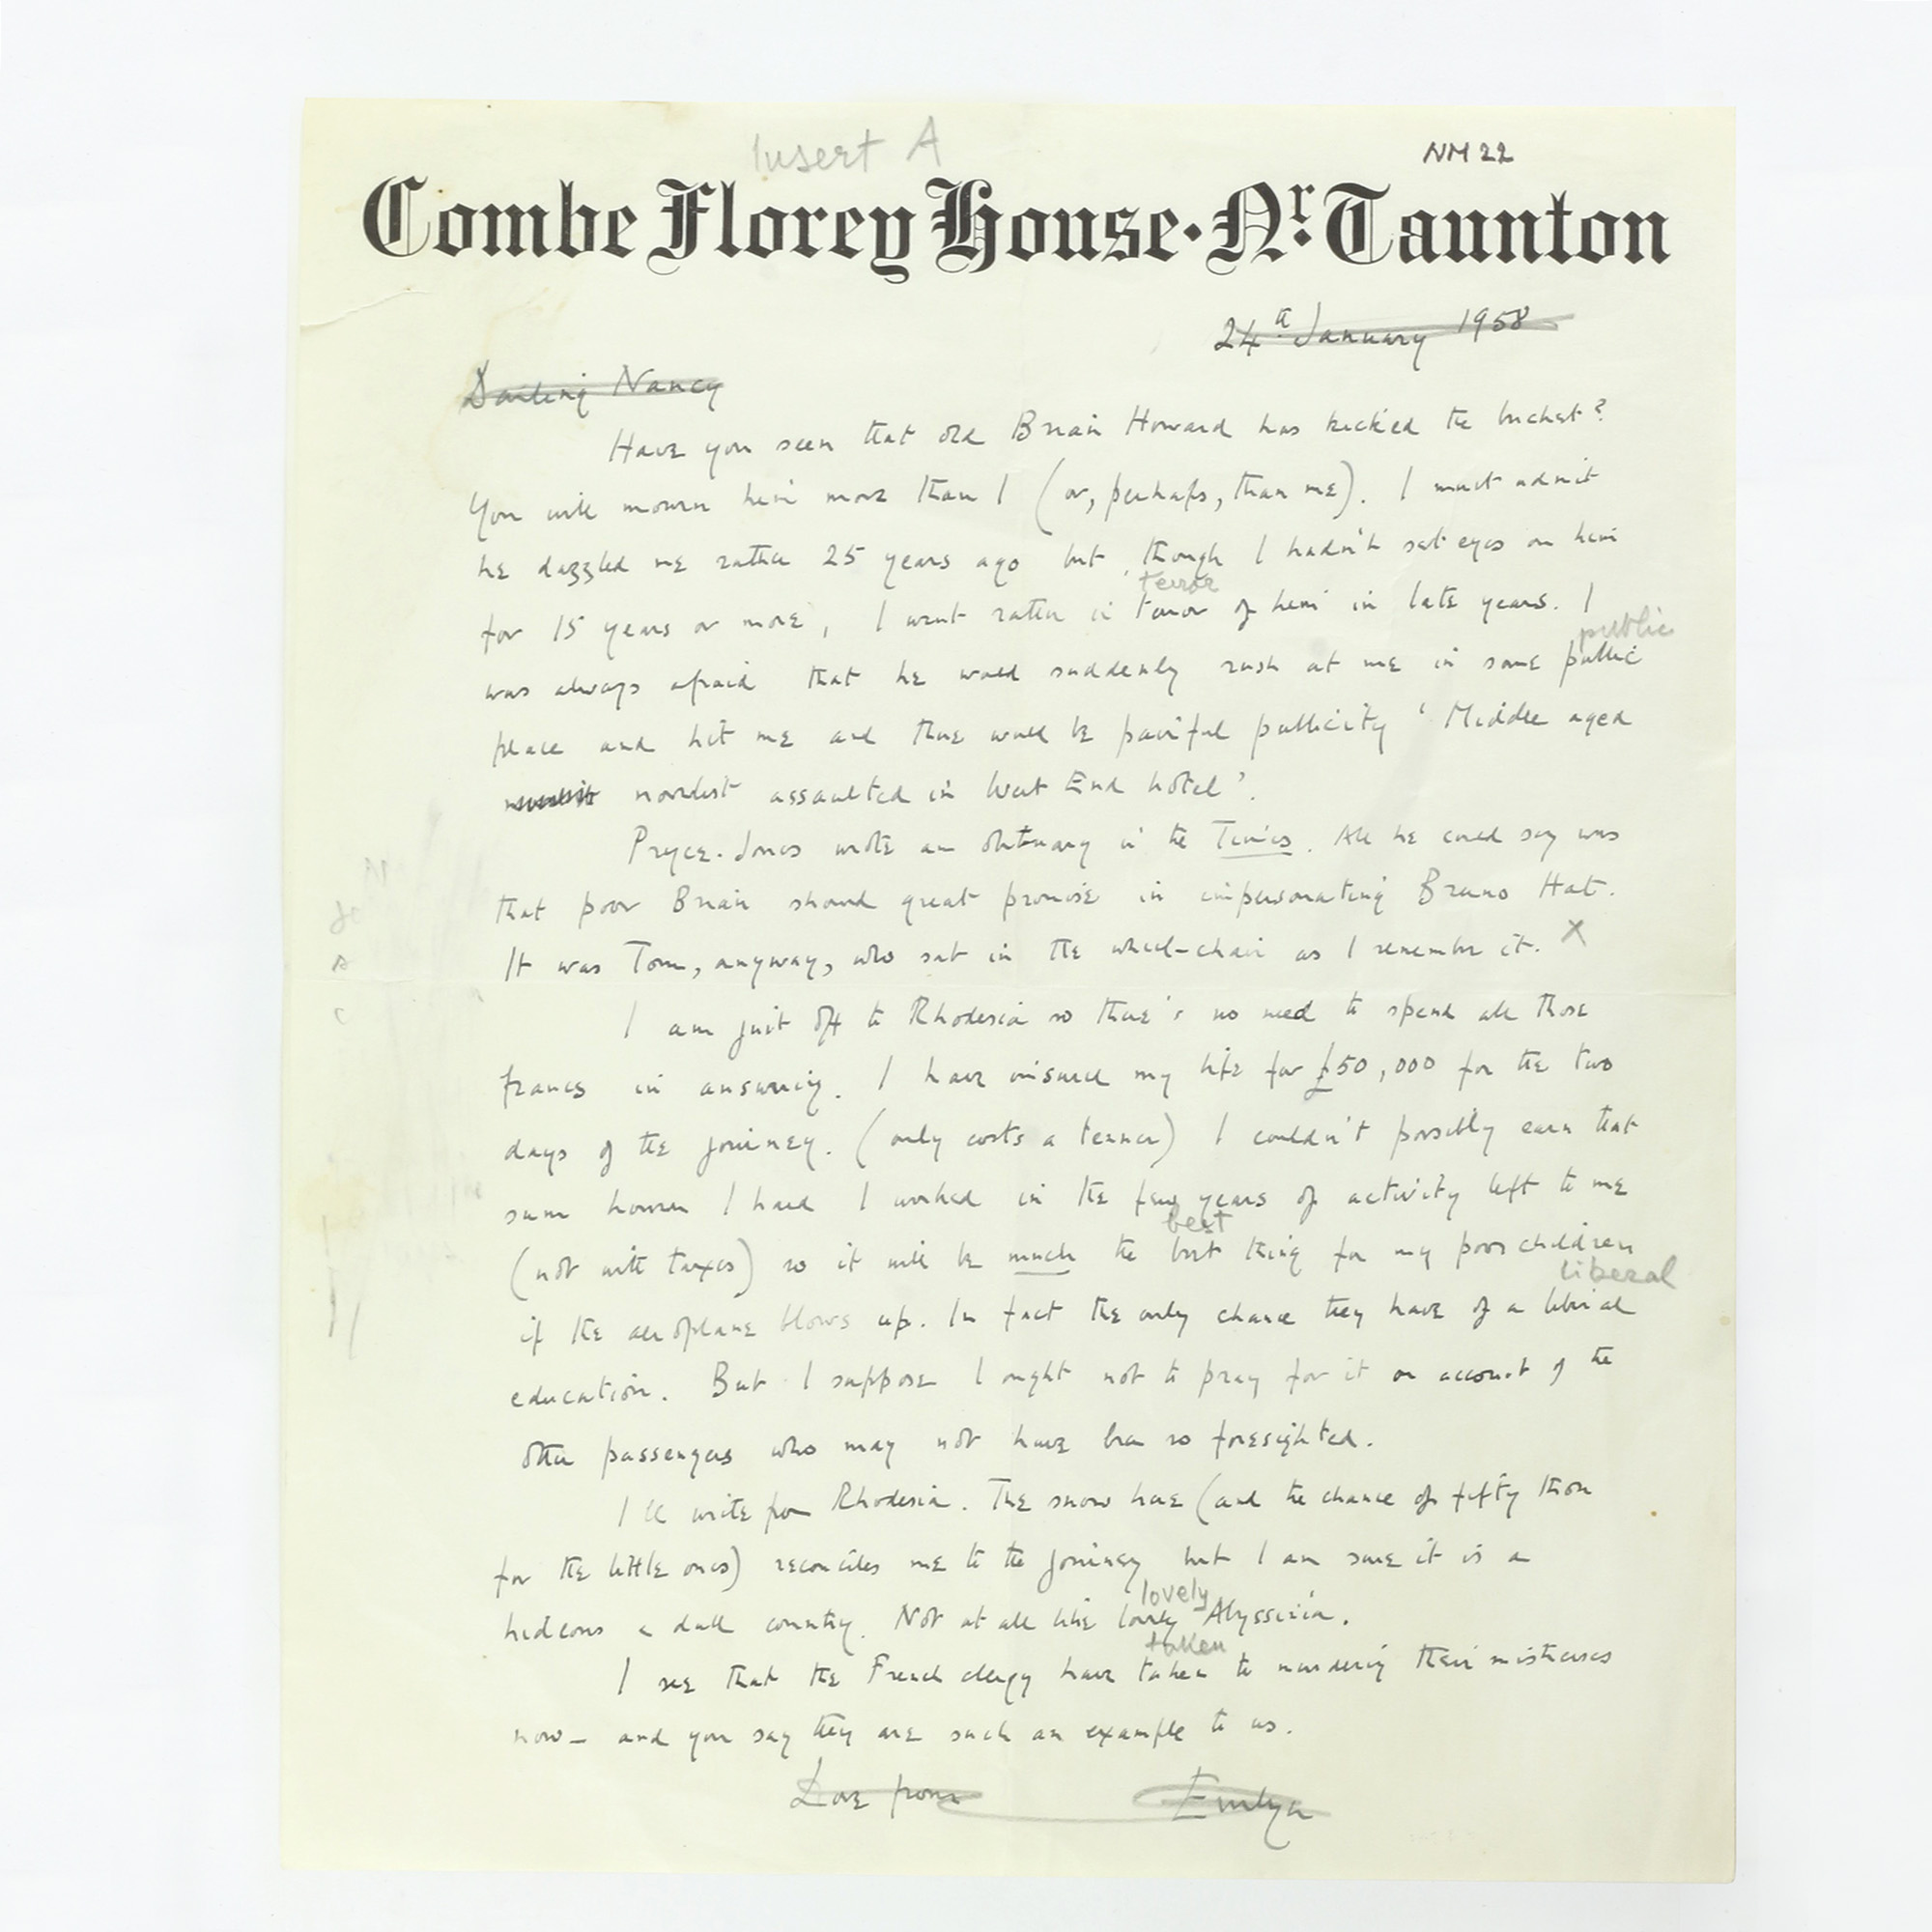 Insert A
NM 22
Combe Florey House · Nr. Taunton
24th January 1958
Darling Nancy
Have you seen that old Brian Howard has kicked the bucket?
You will mourn him more than I (or, perhaps, than me). I must admit
he dazzled me rather 25 years ago but, though I hadn't set eyes on him
terror
for 15 years or more, I went rather in terror of him in late years. I
public
was always afraid that he would suddenly rush at me in some public
place and hit me and there would be painful publicity 'Middle aged
novelist assaulted in West End hotel'.
Pryce-Jones wrote an obituary in the Times. All he could say was
that poor Brian showed great promise in impersonating Bruno Hat.
It was Tom, anyway, who sat in the wheel-chair as I remember it. X
I am just off to Rhodesia so there's no need to spend all those
francs in answering. I have insured my life for £50,000 for the two
days of the journey. (only costs a tenner) I couldn't possibly earn that
sum however hard I worked in the few years of activity left to me
best
(not with taxes) so it will be much the best thing for my poor children
liberal
if the aeroplane blows up. In fact the only chance they have of a liberal
education. But I suppose I ought not to pray for it on account of the
other passengers who may not have been so foresighted.
I'll write from Rhodesia. The snow here (and the chance of fifty thou
for the little ones) reconciles me to the journey but I am sure it is a
lovely
hideous & dull country. Not at all like lovely Abyssinia.
taken
I see that the French clergy have taken to murdering their mistresses
now – and you say they are such an example to us.
Love from Evelyn